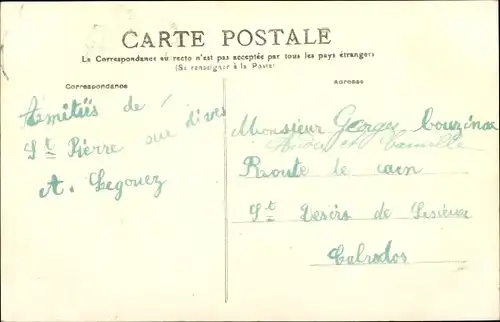 CARTE POSTALE
La Correspondance au recto n'est pas acceptée par tous les pays étrangers
(Se renseigner à la Poste)
Correspondance
Amitiés de
St Pierre sur dives
A. Legouez
Adresse
Monsieur Georges Couzinae
et Camille
Route de caen
St Desirs de Lisieux
Calvados